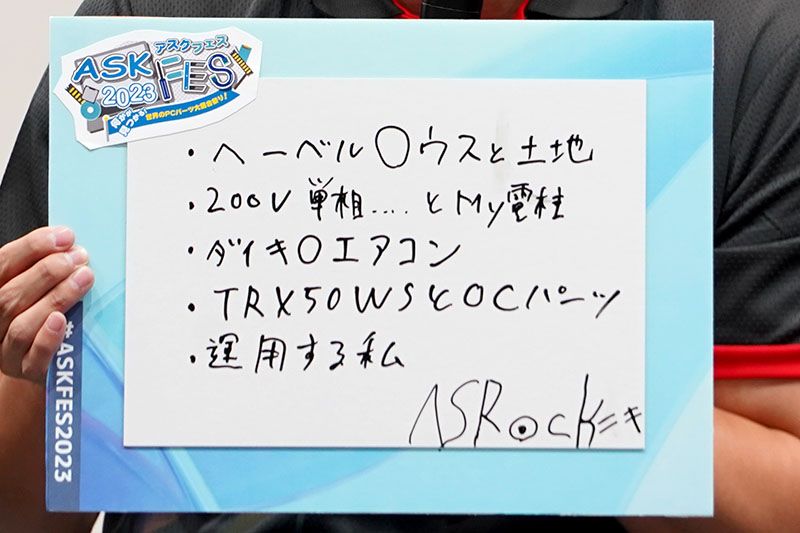 アスクフェス
ASK FES
2023
世界のPCパーツ大集合祭り!
・ヘーベル〇ウスと土地
・200V 単相....とMy電柱
・ダイキ〇エアコン
・TRX50WSとOCパーツ
・運用する私
ASRockミキ
#ASKFES2023